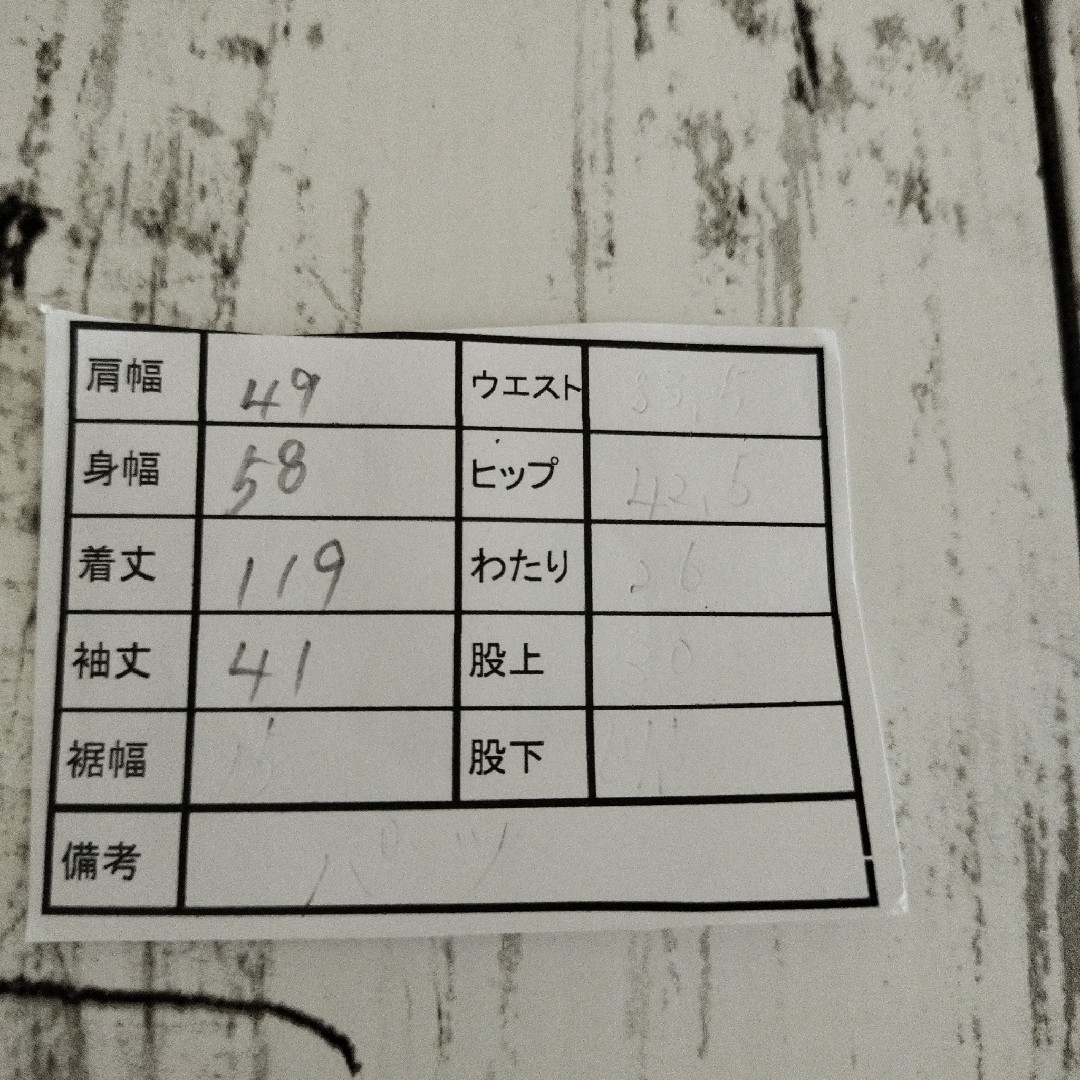 肩幅 49 ウエスト
身幅 58 ヒップ 42.5
着丈 119 わたり 26
袖丈 41 股上 30
裾幅 股下
備考